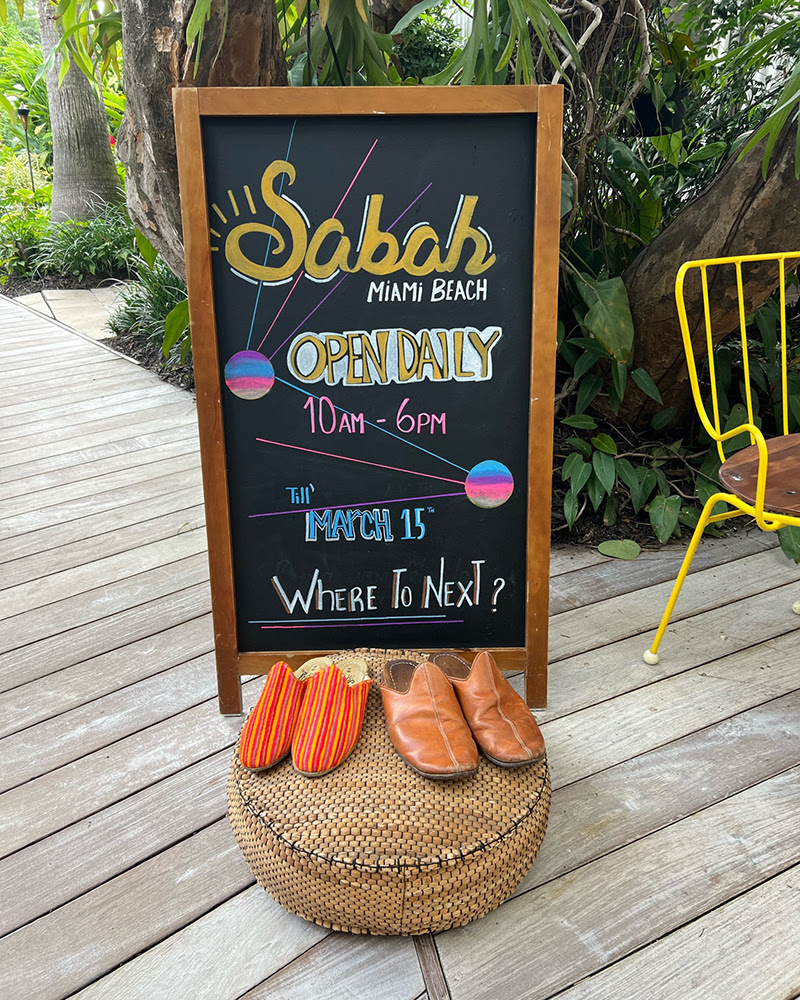 Sabah
MIAMI BEACH
OPEN DAILY
10AM - 6PM
Till'
MARCH 15TH
WHERE TO NEXT?